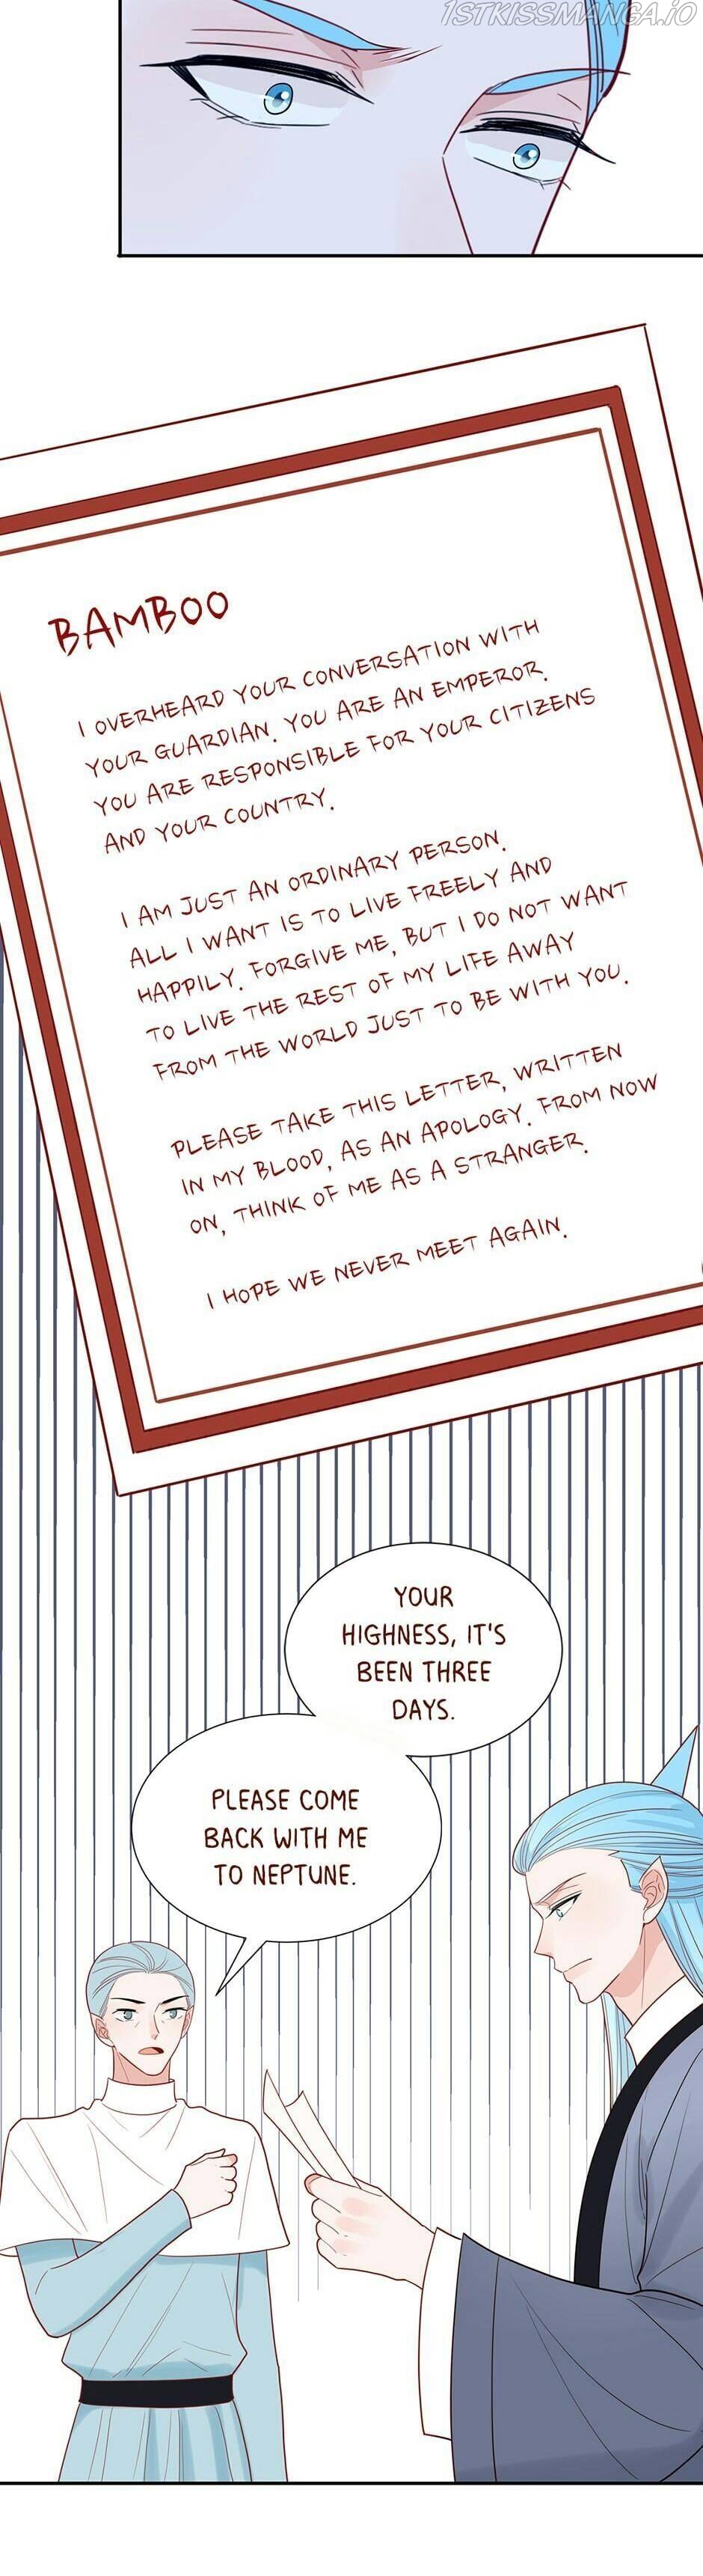 1STKISSMANGA.iO
BAMBOO
I OVERHEARD YOUR CONVERSATION WITH
YOUR GUARDIAN. YOU ARE AN EMPEROR.
YOU ARE RESPONSIBLE FOR YOUR CITIZENS
AND YOUR COUNTRY.
I AM JUST AN ORDINARY PERSON.
ALL I WANT IS TO LIVE FREELY AND
HAPPILY. FORGIVE ME, BUT I DO NOT WANT
TO LIVE THE REST OF MY LIFE AWAY
FROM THE WORLD JUST TO BE WITH YOU.
PLEASE TAKE THIS LETTER, WRITTEN
IN MY BLOOD, AS AN APOLOGY. FROM NOW
ON, THINK OF ME AS A STRANGER.
I HOPE WE NEVER MEET AGAIN.
YOUR
HIGHNESS, IT'S
BEEN THREE
DAYS.
PLEASE COME
BACK WITH ME
TO NEPTUNE.